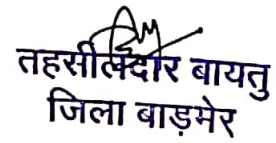 तहसीलदार बायतु
जिला बाड़मेर